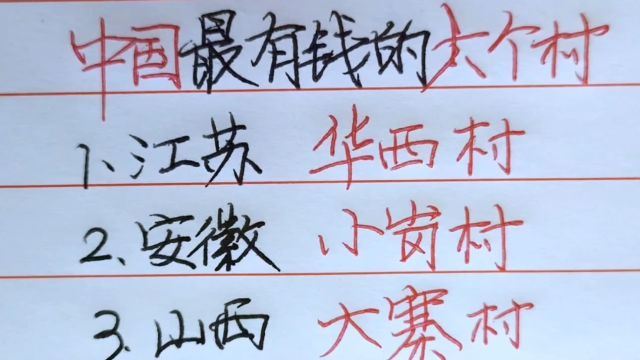 中国最有钱的六个村
1、江苏 华西村
2、安徽 小岗村
3、山西 大寨村